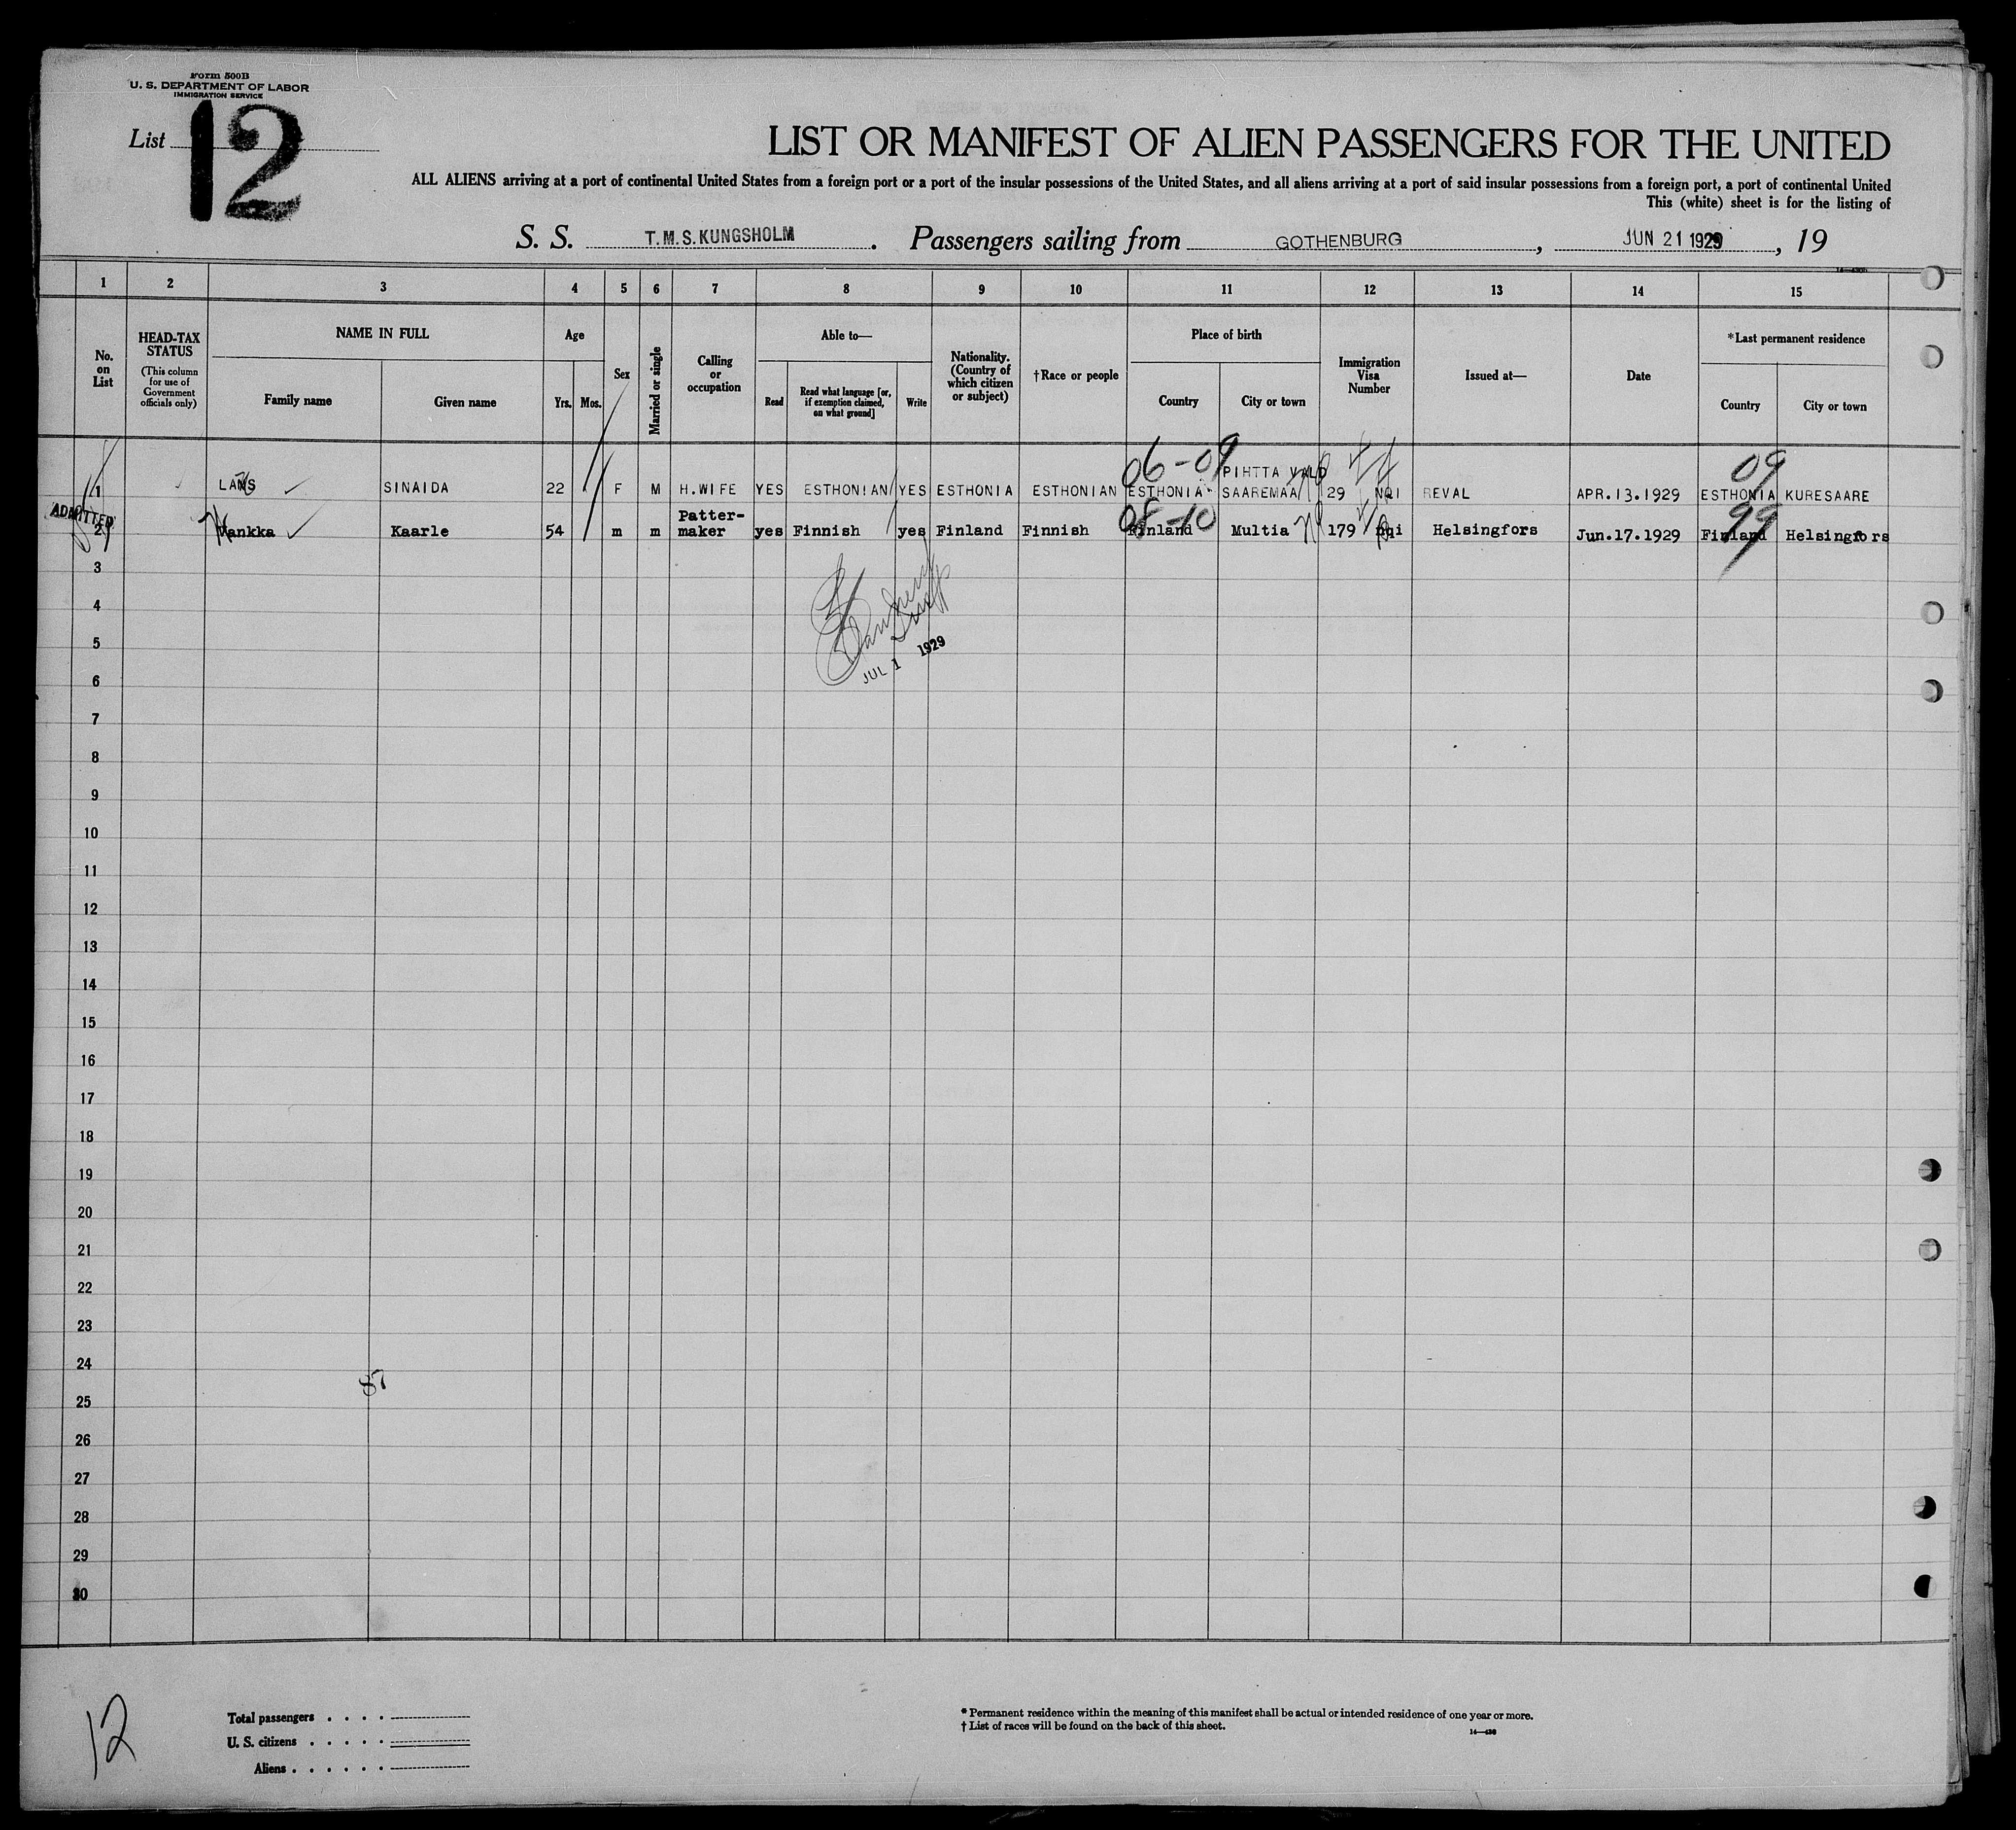 Form 500B
U. S. DEPARTMENT OF LABOR
IMMIGRATION SERVICE
List 12
LIST OR MANIFEST OF ALIEN PASSENGERS FOR THE UNITED
ALL ALIENS arriving at a port of continental United States from a foreign port or a port of the insular possessions of the United States, and all aliens arriving at a port of said insular possessions from a foreign port, a port of continental United
This (white) sheet is for the listing of
S. S. T.M.S.KUNGSHOLM. Passengers sailing from GOTHENBURG, JUN 21 1929, 19
1 2 3 4 5 6 7 8 9 10 11 12 13 14 15
No. on List
HEAD-TAX STATUS
(This column for use of Government officials only)
NAME IN FULL
Family name
Given name
Age
Yrs. Mos.
Sex
Married or single
Calling or occupation
Able to—
Read
Read what language [or, if exemption claimed, on what ground]
Write
Nationality. (Country of which citizen or subject)
†Race or people
Place of birth
Country
City or town
Immigration Visa Number
Issued at—
Date
*Last permanent residence
Country
City or town
06-09 09
PIHTTA VALD
1 LANS SINAIDA 22 F M H.WIFE YES ESTHONIAN YES ESTHONIA ESTHONIAN ESTHONIA SAAREMAA 29 NQI REVAL APR.13.1929 ESTHONIA KURESAARE
ADMITTED
08-10 99
Patter-
2 Vankka Kaarle 54 m m maker yes Finnish yes Finland Finnish Finland Multia 179 nqi Helsingfors Jun.17.1929 Finland Helsingfors
3
4
5
JUL 1 1929
6
7
8
9
10
11
12
13
14
15
16
17
18
19
20
21
22
23
24
87
25
26
27
28
29
30
12
Total passengers . . . .
U. S. citizens . . . . .
Aliens . . . . . .
* Permanent residence within the meaning of this manifest shall be actual or intended residence of one year or more.
† List of races will be found on the back of this sheet.